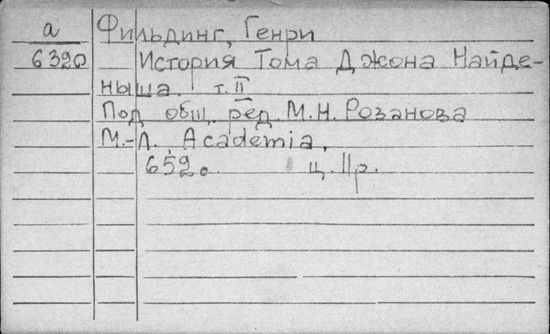 а Фильдинг, Генри
6320 История Тома Джона Найде-
ныша. т. II
Под общ. ред. М.Н. Розанова
М.-Л. Academia,
652с. ц. 11р.